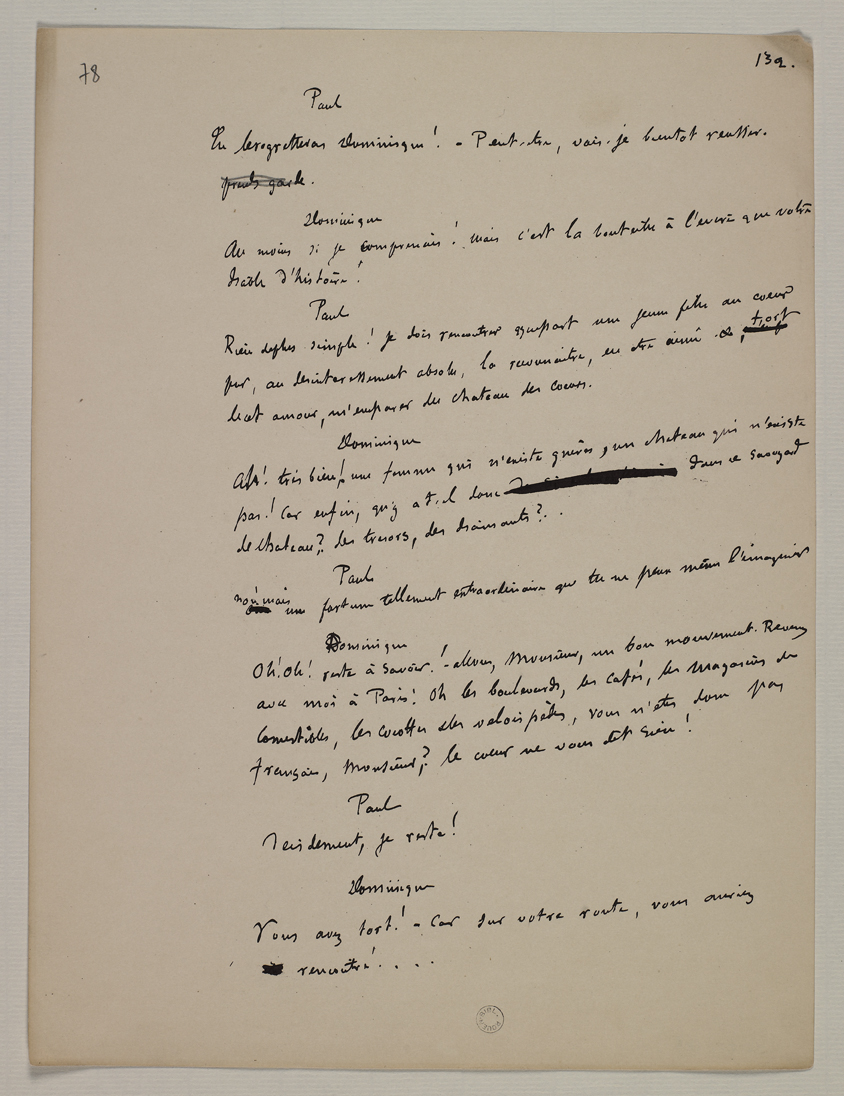 78
132.
Paul
Tu le regretteras Dominique! - Peut-etre, vais-je bientot
prends garde.
Dominique
Au moins si je comprenais! mais c'est la bouteille à l'encre que votre
diable d'histoire!
Paul
Rien de plus simple! je dois rencontrer quelque part une jeune fille au coeur
pur, au desinteressement absolu, la reconnaitre, en etre aimé et, fort
de cet amour, m'emparer du chateau des coeurs.
Dominique
Ah! très bien! une femme qui n'existe guères, un chateau qui n'existe
pas! Car enfin, qu'y a-t-il donc dans ce
de chateau? des tresors, des diamants? . .
Paul
non mais une fortune tellement extraordinaire que tu ne peux même l'imaginer
Dominique
Oh! Oh! reste à savoir! - allons, Monsieur, un bon mouvement. Revenez
avec moi à Paris! Oh les boulevards, les cafés, les magasins de
comestibles, les cocottes à velocipèdes, vous n'etes donc pas
français, Monsieur? le coeur ne vous dit rien!
Paul
Decidement, je reste!
Dominique
Vous avez tort! - Car sur votre route, vous auriez
rencontré! . . . .